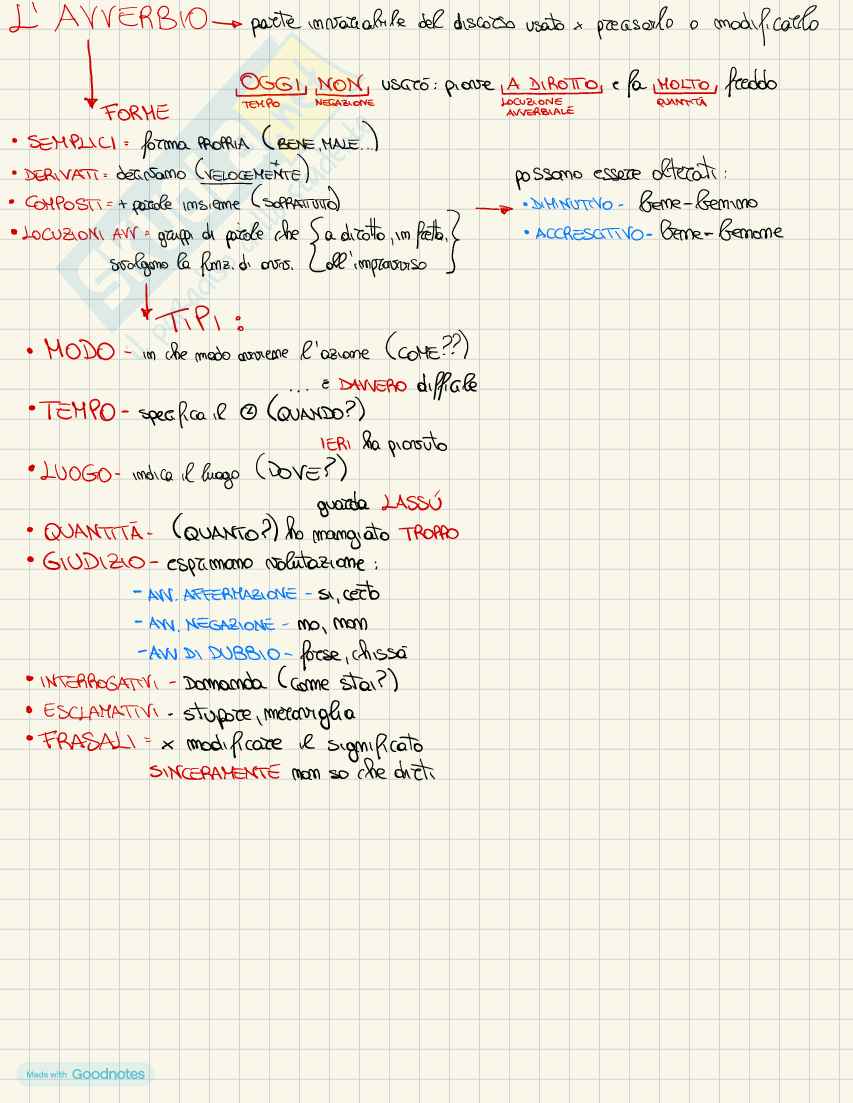 L'AVVERBIO → parte invariabile del discorso usato x precisarlo o modificarlo
OGGI NON uscirò: piove A DIROTTO e fa MOLTO freddo
TEMPO NEGAZIONE LOCUZIONE AVVERBIALE QUANTITÀ
FORME
• SEMPLICI = forma PROPRIA (BENE, MALE...)
• DERIVATI = derivano (VELOCEMENTE)
• COMPOSTI = + parole insieme (SOPRATTUTTO)
• LOCUZIONI AVV = gruppi di parole che { a dirotto, in fretta,
svolgono la funz. di avv. { all'improvviso }
possono essere alterati:
• DIMINUTIVO - Bene-Benino
• ACCRESCITIVO - Bene-Benone
TIPI:
• MODO - in che modo avviene l'azione (COME??)
... è DAVVERO difficile
• TEMPO - specifica il (QUANDO?)
IERI ha piovuto
• LUOGO - indica il luogo (DOVE?)
guarda LASSÚ
• QUANTITÀ - (QUANTO?) ho mangiato TROPPO
• GIUDIZIO - esprimono valutazione:
- AVV. AFFERMAZIONE - si, certo
- AVV. NEGAZIONE - no, non
- AVV DI DUBBIO - forse, chissà
• INTERROGATIVI - Domanda (Come stai?)
• ESCLAMATIVI - stupore, meraviglia
• FRASALI = x modificare il significato
SINCERAMENTE non so che dirti
Made with Goodnotes